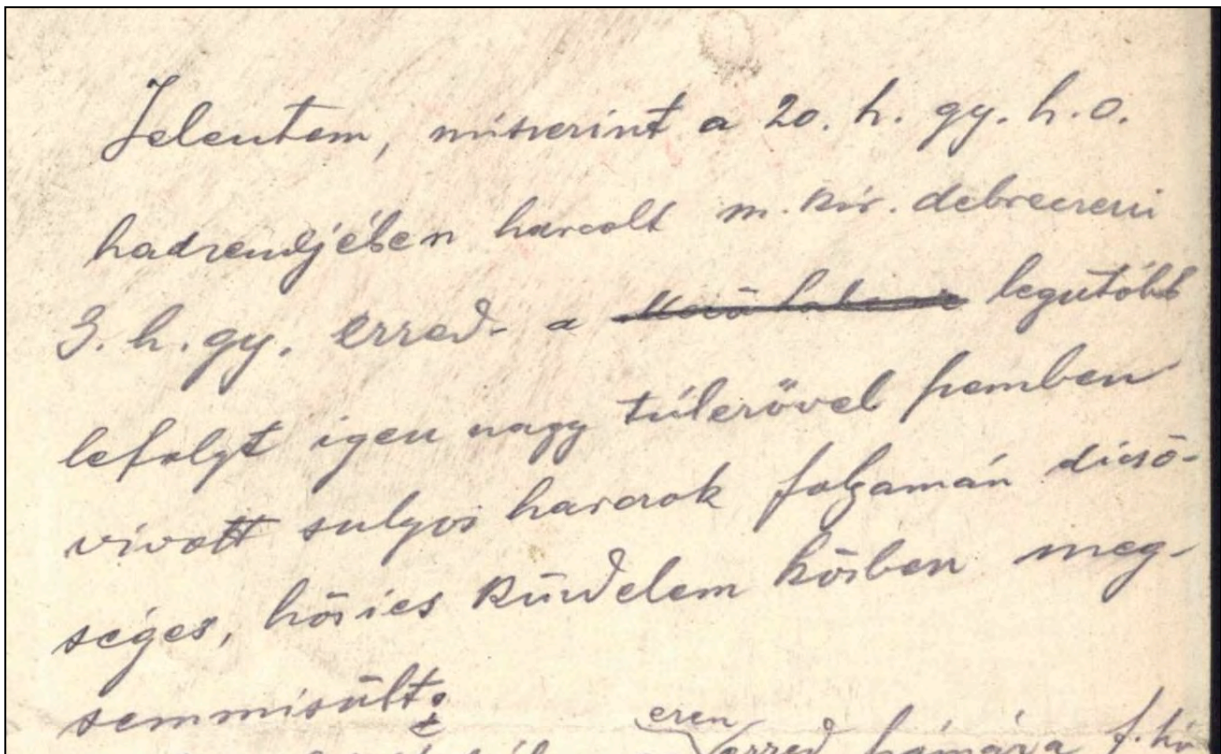 Jelentem, miszerint a 20. h. gy. h.o.
hadrendjében harcolt m. kir. debreczeni
3. h. gy. ezred a legutóbb
lefolyt igen nagy túlerővel szemben
vívott sulyos harcok folyamán dicső-
séges, hősies küzdelem közben meg-
semmisült
ezen
ezred